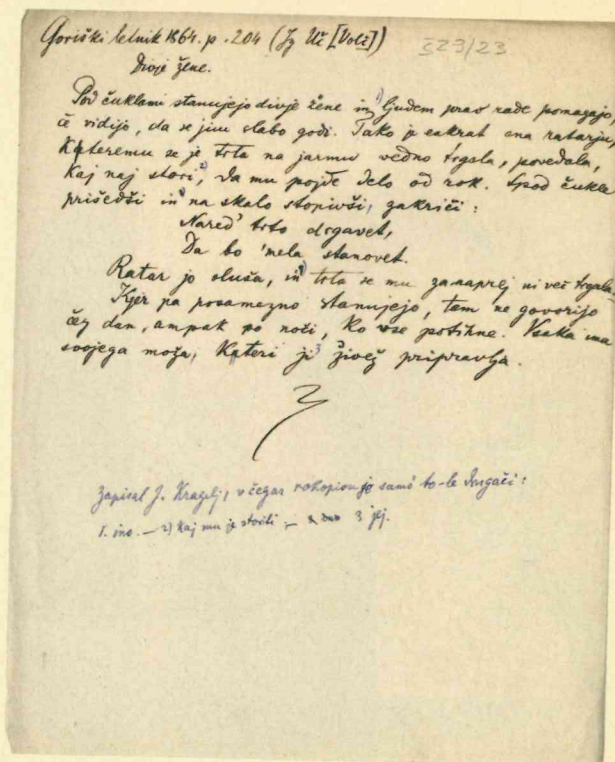 Goriški letnik 1864. p. 204 (Jg Uč [Volč])
ŠZ3/23
Divje žene.
Pod čuklami stanujejo divje žene in 1) ljudem prav rade pomagajo,
če vidijo, da se jim slabo godi. Tako je enkrat ena ratarju,
kateremu se je trta na jarmu vedno trgala, povedala,
kaj naj stori, 2) da mu pojde delo od rok. Spod čukle
prišedši in 1) na skalo stopivši, zakriči:
Nared' trto drgavet,
Da bo 'mela stanovet.
Ratar jo sluša, in 1) trta se mu zanaprej ni več trgala.
Kjer pa posamezno stanujejo, tam ne govorijo
čez dan, ampak po noči, ko vse potihne. Vsaka ima
svojega moža, kateri ji 3 živež pripravlja.
Zapisal J. Kragelj, v čegar rokopisu je samó to-le drugači:
1. ino. — 2) kaj mu je storiti, — 3 jej.